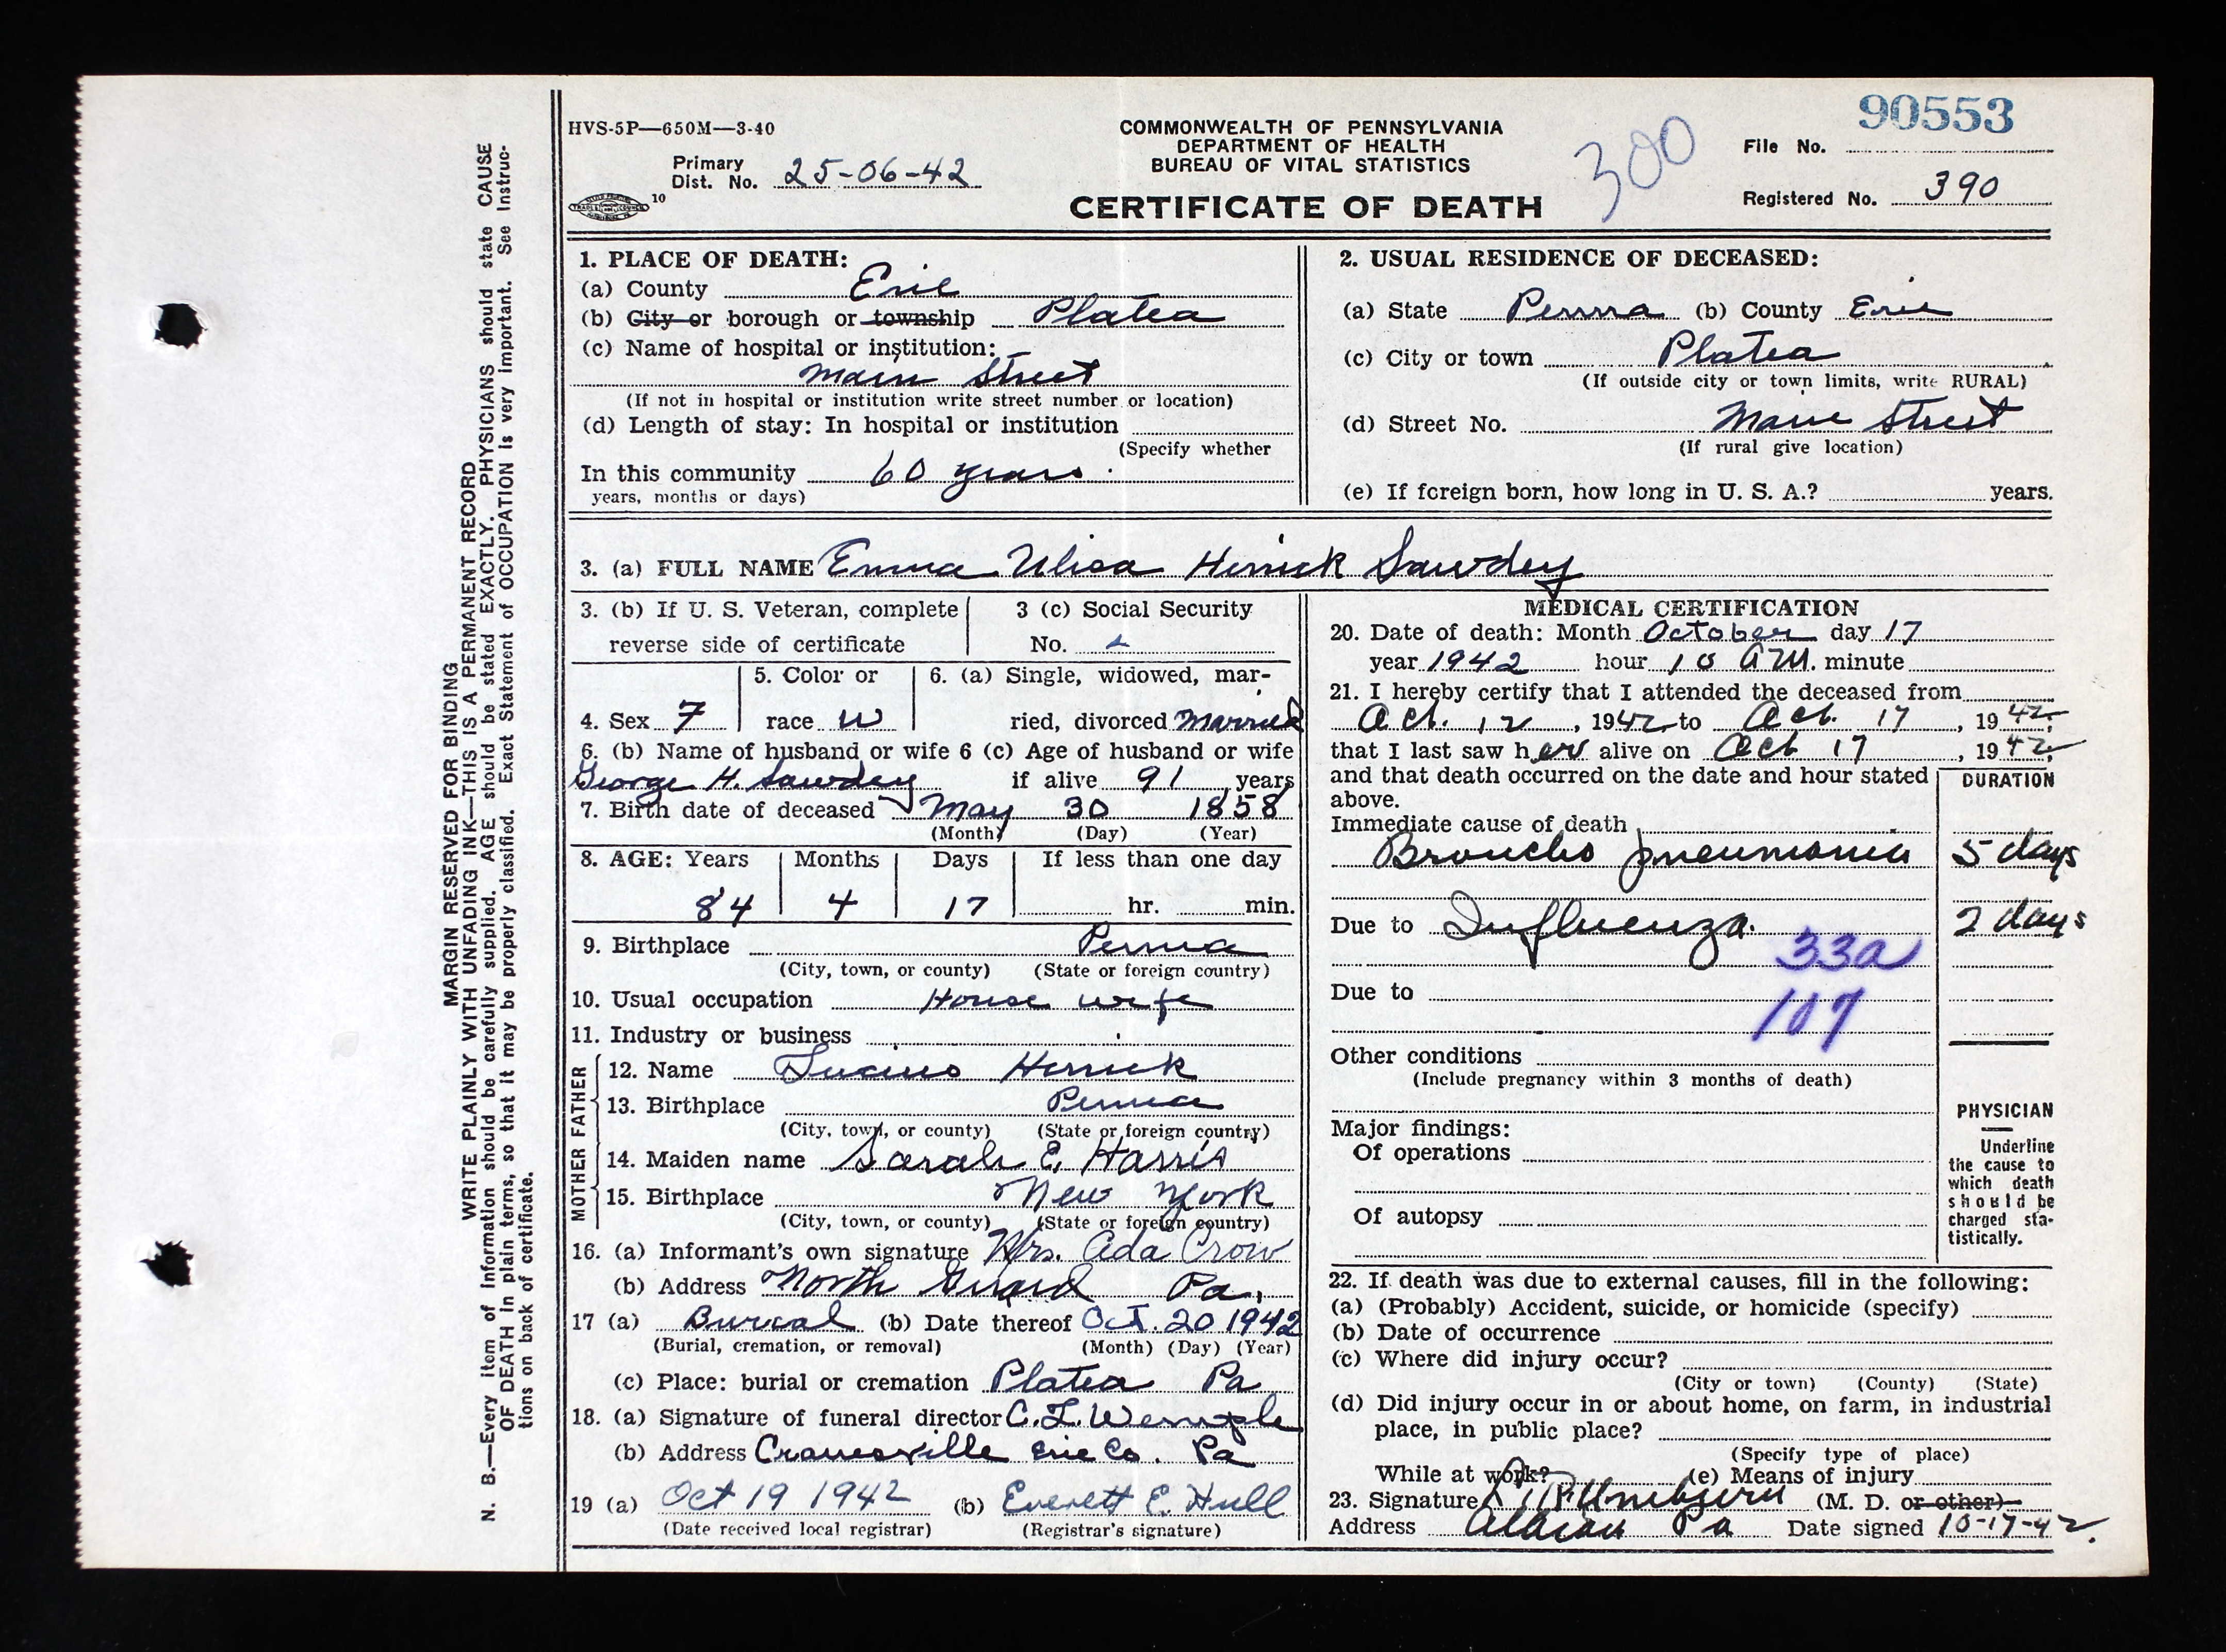 HVS-5P—650M—3-40
COMMONWEALTH OF PENNSYLVANIA
DEPARTMENT OF HEALTH
BUREAU OF VITAL STATISTICS
CERTIFICATE OF DEATH
Primary
Dist. No. 25-06-42
10
300
90553
File No.
Registered No. 390
MARGIN RESERVED FOR BINDING
WRITE PLAINLY WITH UNFADING INK—THIS IS A PERMANENT RECORD
N. B.—Every item of information should be carefully supplied. AGE should be stated EXACTLY. PHYSICIANS should state CAUSE
OF DEATH in plain terms, so that it may be properly classified. Exact Statement of OCCUPATION is very important. See Instruc-
tions on back of certificate.
1. PLACE OF DEATH:
(a) County Erie
(b) City or borough or township Platea
(c) Name of hospital or institution:
Main Street
(If not in hospital or institution write street number or location)
(d) Length of stay: In hospital or institution
(Specify whether
In this community 60 years
years, months or days)
2. USUAL RESIDENCE OF DECEASED:
(a) State Penna (b) County Erie
(c) City or town Platea
(If outside city or town limits, write RURAL)
(d) Street No. Main Street
(If rural give location)
(e) If foreign born, how long in U. S. A.? years.
3. (a) FULL NAME Emma Herrick Sawdey
3. (b) If U. S. Veteran, complete
reverse side of certificate
3 (c) Social Security
No.
4. Sex F
5. Color or
race W
6. (a) Single, widowed, mar-
ried, divorced Married
6. (b) Name of husband or wife 6 (c) Age of husband or wife
George H. Sawdey if alive 91 years
7. Birth date of deceased May 30 1858
(Month) (Day) (Year)
8. AGE: Years Months Days If less than one day
84 4 17 hr. min.
9. Birthplace Penna
(City, town, or county) (State or foreign country)
10. Usual occupation House wife
11. Industry or business
FATHER
12. Name Lucius Herrick
13. Birthplace Penna
(City, town, or county) (State or foreign country)
MOTHER
14. Maiden name Sarah E. Harris
15. Birthplace New York
(City, town, or county) (State or foreign country)
16. (a) Informant's own signature Mrs. Ada Crow
(b) Address North Girard Pa.
17 (a) Burial (b) Date thereof Oct. 20 1942
(Burial, cremation, or removal) (Month) (Day) (Year)
(c) Place: burial or cremation Platea Pa
18. (a) Signature of funeral director C. L. Wemple
(b) Address Cranesville Erie Co. Pa
19 (a) Oct 19 1942 (b) Everett E. Hull
(Date received local registrar) (Registrar's signature)
MEDICAL CERTIFICATION
20. Date of death: Month October day 17
year 1942 hour 10 A.M. minute
21. I hereby certify that I attended the deceased from
Oct. 12, 1942 to Oct. 17, 1942;
that I last saw her alive on Oct 17, 1942;
and that death occurred on the date and hour stated
above.
DURATION
Immediate cause of death
Broncho pneumonia 5 days
Due to Influenza. 2 days
33a
Due to
107
Other conditions
(Include pregnancy within 3 months of death)
Major findings:
Of operations
Of autopsy
PHYSICIAN
Underline
the cause to
which death
should be
charged sta-
tistically.
22. If death was due to external causes, fill in the following:
(a) (Probably) Accident, suicide, or homicide (specify)
(b) Date of occurrence
(c) Where did injury occur?
(City or town) (County) (State)
(d) Did injury occur in or about home, on farm, in industrial
place, in public place?
(Specify type of place)
While at work? (e) Means of injury
23. Signature (M. D. or other)
Address Albion Pa Date signed 10-17-42.